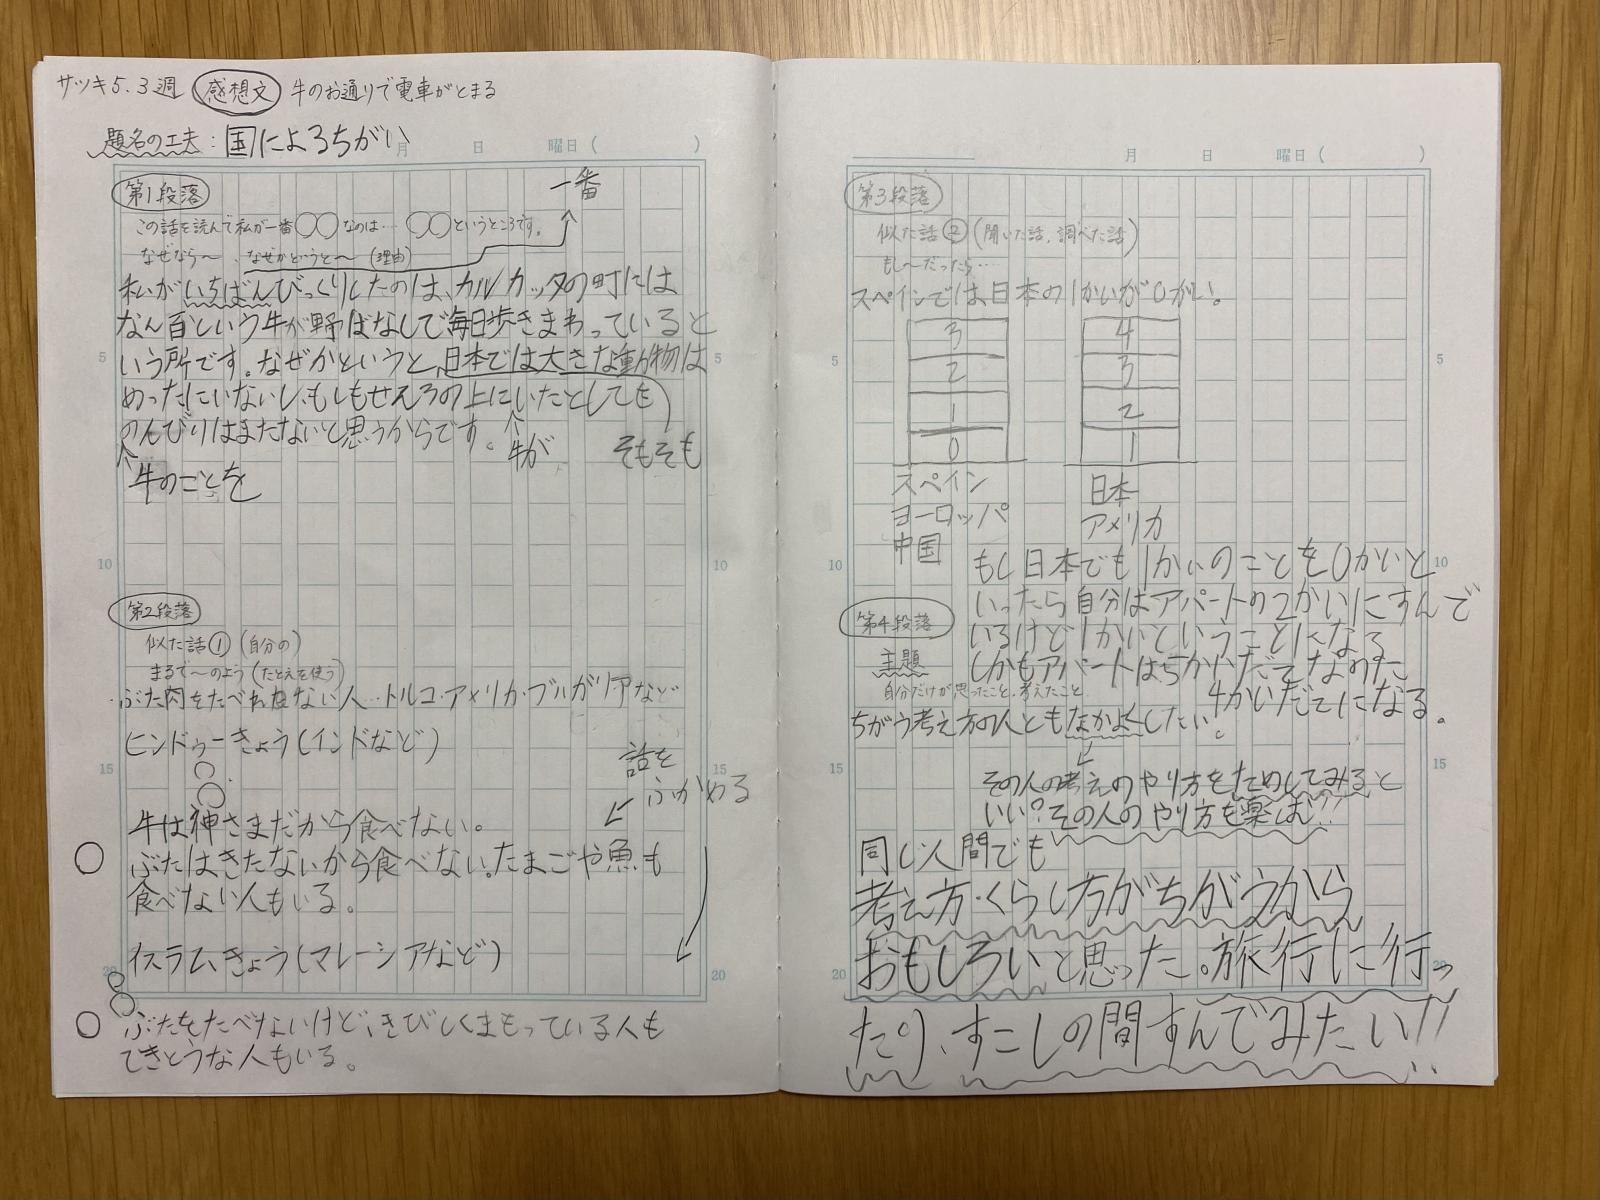 サツキ5.3週 感想文 牛のお通りで電車がとまる
題名の工夫:国によるちがい
月 日 曜日( )
第1段落
一番
この話を読んで私が一番〇〇なのは… 〇〇というところです。
なぜなら〜、なぜかというと〜(理由)
私がいちばんびっくりしたのは、カルカッタの町には
なん百という牛が野ばなしで毎日歩きまわっていると
いう所です。なぜかというと、日本では大きな動物は
めったにいないし、もしもせんろの上にいたとしても
のんびりはまたないと思うからです。
牛が そもそも
牛のことを
5
10
第2段落
似た話① (自分の)
まるで〜のよう(たとえを使う)
ぶた肉をたべれない人…トルコ・アメリカ・ブルガリアなど
ヒンドゥーきょう(インドなど)
話を
ふかめる
15
牛は神さまだから食べない。
ぶたはきたないから食べない。たまごや魚も
食べない人もいる。
イスラムきょう(マレーシアなど)
20
ぶたをたべないけど、きびしくまもっている人も
てきとうな人もいる。
月 日 曜日( )
第3段落
似た話② (聞いた話、調べた話)
もし〜だったら…
スペインでは、日本の1かいが0かい。
3 4
2 3
1 2
0 1
スペイン 日本
ヨーロッパ アメリカ
中国
5
10
もし日本でも1かいのことを0かいと
いったら自分はアパートの2かいにすんで
いるけど1かいということになる
しかもアパートは5かいだてなのに
4かいだてになる。
第4段落
主題
自分だけが思ったこと、考えたこと
ちがう考え方の人ともなかよくしたい。
15
その人の考えのやり方をためしてみると
いい?その人のやり方を楽しむ!!
同じ人間でも
考え方・くらし方がちがうから
おもしろいと思った。旅行に行っ
20
たり、すこしの間すんでみたい!!